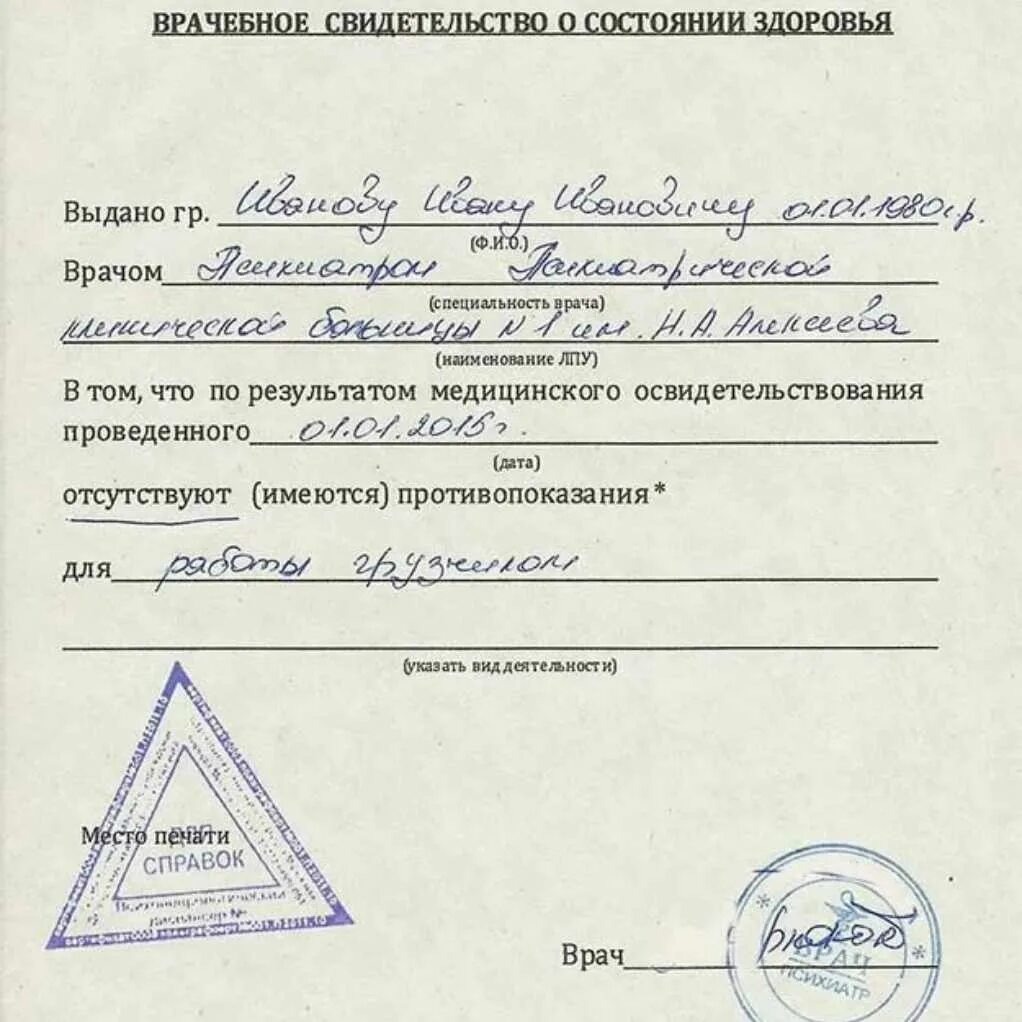 ВРАЧЕБНОЕ СВИДЕТЕЛЬСТВО О СОСТОЯНИИ ЗДОРОВЬЯ
Выдано гр. Иванову Ивану Ивановичу 01.01.1980 г.р.
(Ф.И.О.)
Врачом Психиатром Психиатрической
(специальность врача)
клинической больницы №1 им. Н.А. Алексеева
(наименование ЛПУ)
В том, что по результатом медицинского освидетельствования
проведенного 01.01.2015 г.
(дата)
отсутствуют (имеются) противопоказания*
для работы грузчиком
(указать вид деятельности)
Место печати
ДЛЯ
СПРАВОК
Психоневрологический
диспансер №
Врач
ВРАЧ
ПСИХИАТР